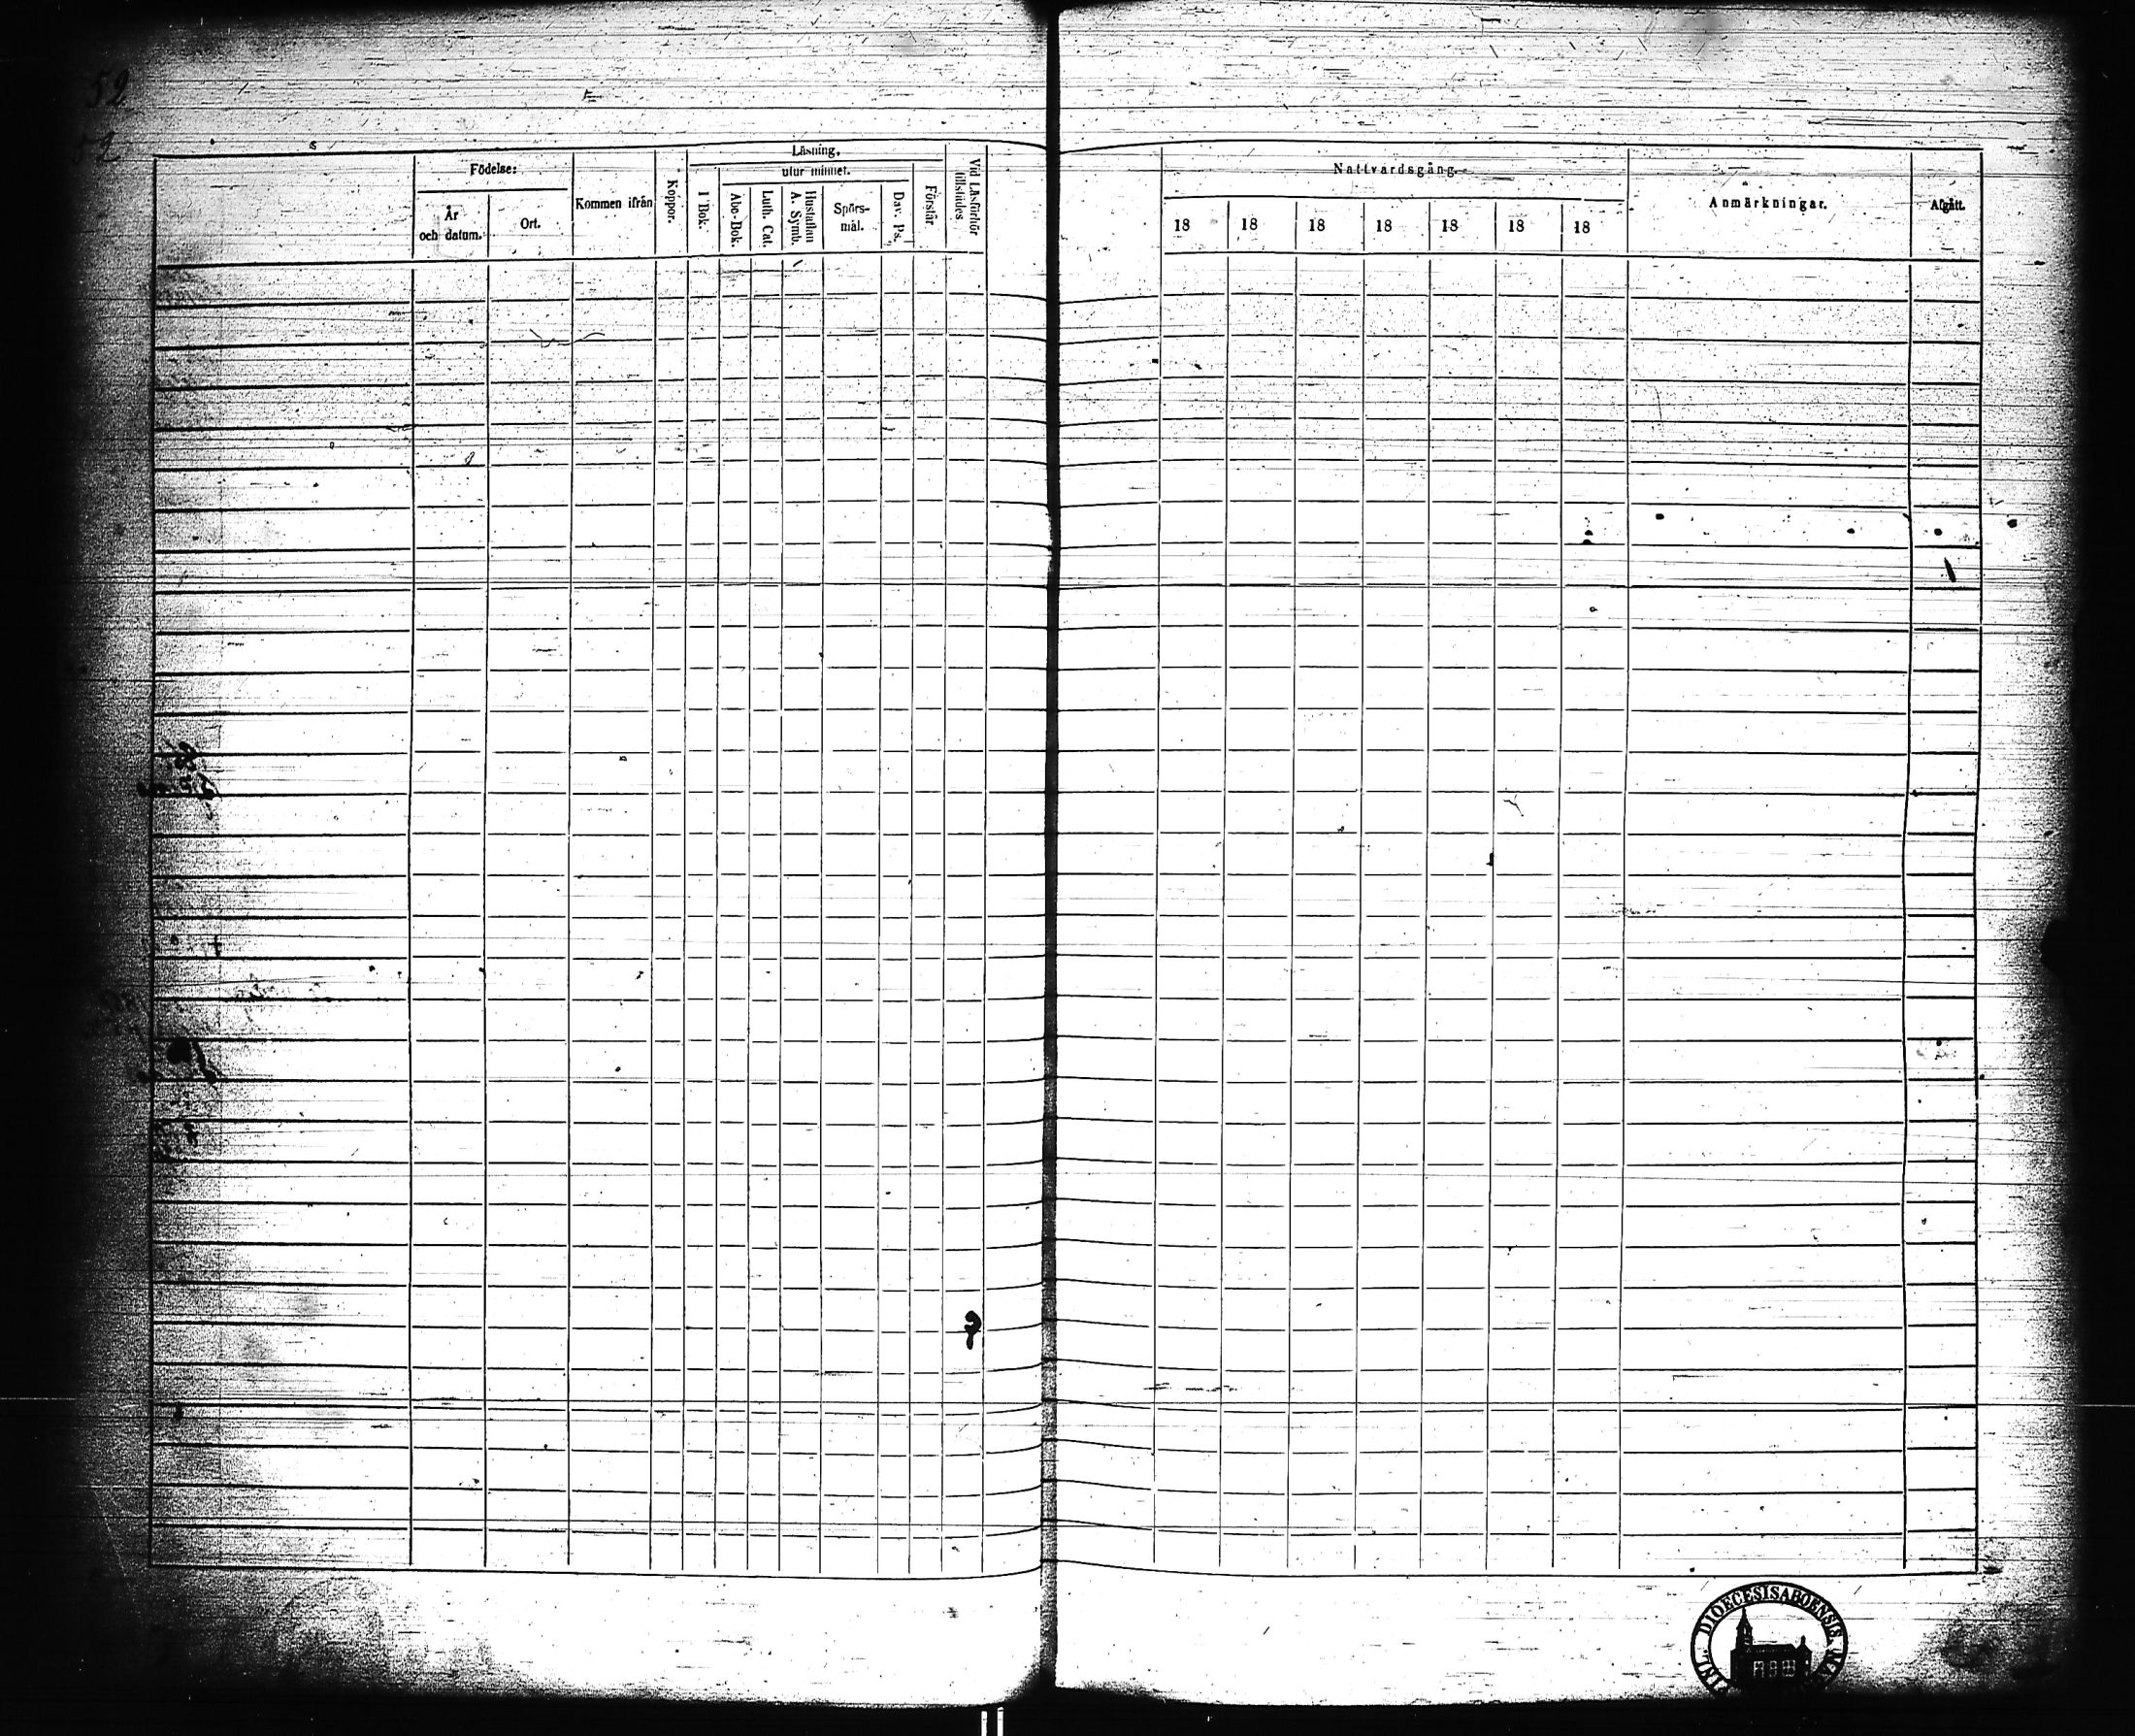 52
52
Födelse:
År
och datum.
Ort.
Kommen ifrån
Koppor.
Läsning,
utur minnet.
I Bok.
Abc-Bok.
Luth. Cat.
Hustaflan
A. Symb.
Spörs-
mål.
Dav. Ps.
Förstår
Vid Läsförhör
tillstädes
Nattvardsgång.
18 18 18 18 18 18 18
Anmärkningar.
Afgått.
DIOECESIS ABOENSIS